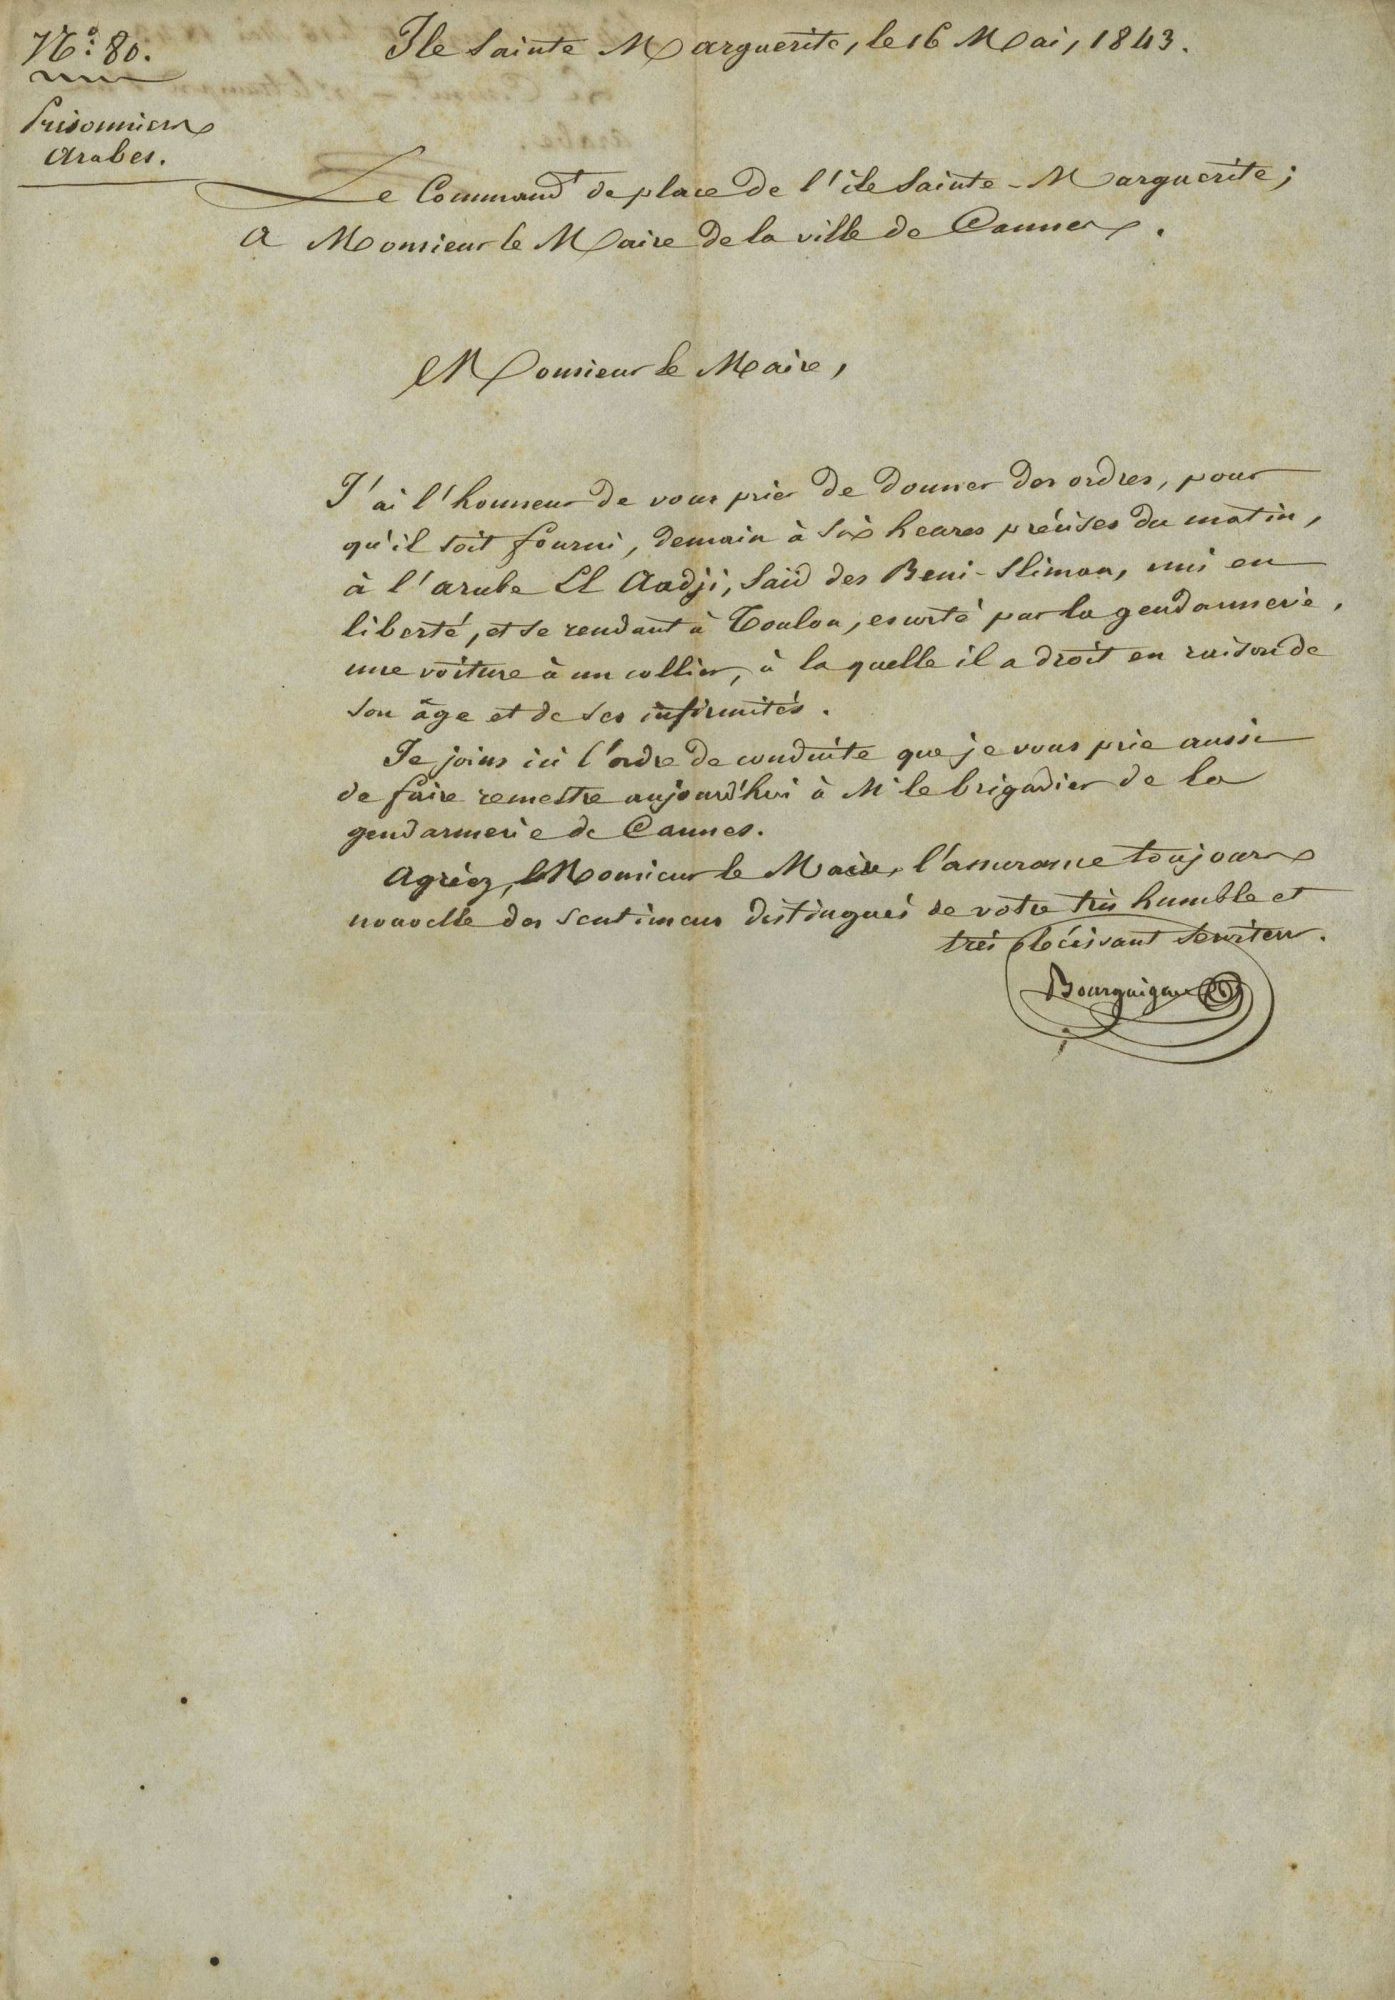 N.o 80.
Ile Sainte Marguerite, le 16 Mai, 1843.
Prisonniers
Arabes.
Le Command.t de place de l'île Sainte-Marguerite;
A Monsieur le Maire de la ville de Cannes.
Monsieur le Maire,
J'ai l'honneur de vous prier de donner des ordres, pour
qu'il soit fourni, demain à six heures précises du matin,
à l'arabe El Aadji, Saïd des Beni-Sliman, mis en
liberté, et se rendant à Toulon, escorté par la gendarmerie,
une voiture à un collier, à la quelle il a droit en raison de
son âge et de ses infirmités.
Je joins ici l'ordre de conduite que je vous prie aussi
de faire remettre aujourd'hui à Mr le brigadier de la
gendarmerie de Cannes.
Agréez, Monsieur le Maire, l'assurance toujours
nouvelle des sentimens distingués de votre très humble et
très obéissant serviteur.
Bourguignon